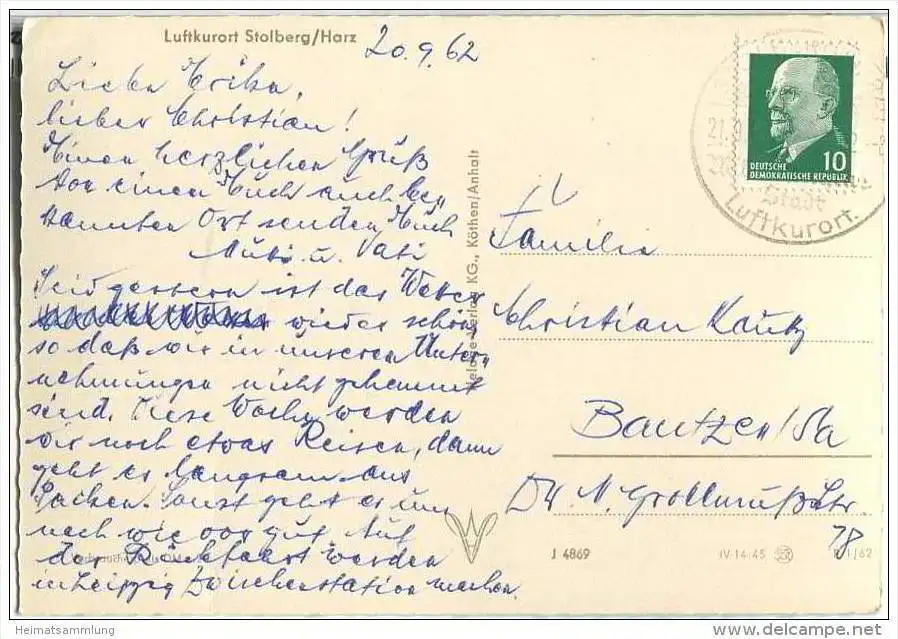 Luftkurort Stolberg/Harz
20.9.62
Liebe Erika,
lieber Christian!
Einen herzlichen Gruß
von einem Euch auch be„
kannten Ort senden Euch
Mutti u. Vati
Seid gestern ist das Wetter
wieder schön,
so daß wir in unseren Unter„
nehmungen nicht gehemmt
sind. Diese Woche werden
wir noch etwas Reisen, dann
geht es langsam ans
Packen. Sonst geht es uns
nach wie vor gut. Auf
der Rückfahrt werden
in Leipzig Zwischenstation machen.
KG., Köthen/Anhalt
DEUTSCHE
DEMOKRATISCHE REPUBLIK
10
21.
Stadt
Luftkurort
Familie
Christian Kautz
Bautzen/Sa
Str.
78
J 4869
IV-14-45
1/62
Heimatsammlung
www.delcampe.net